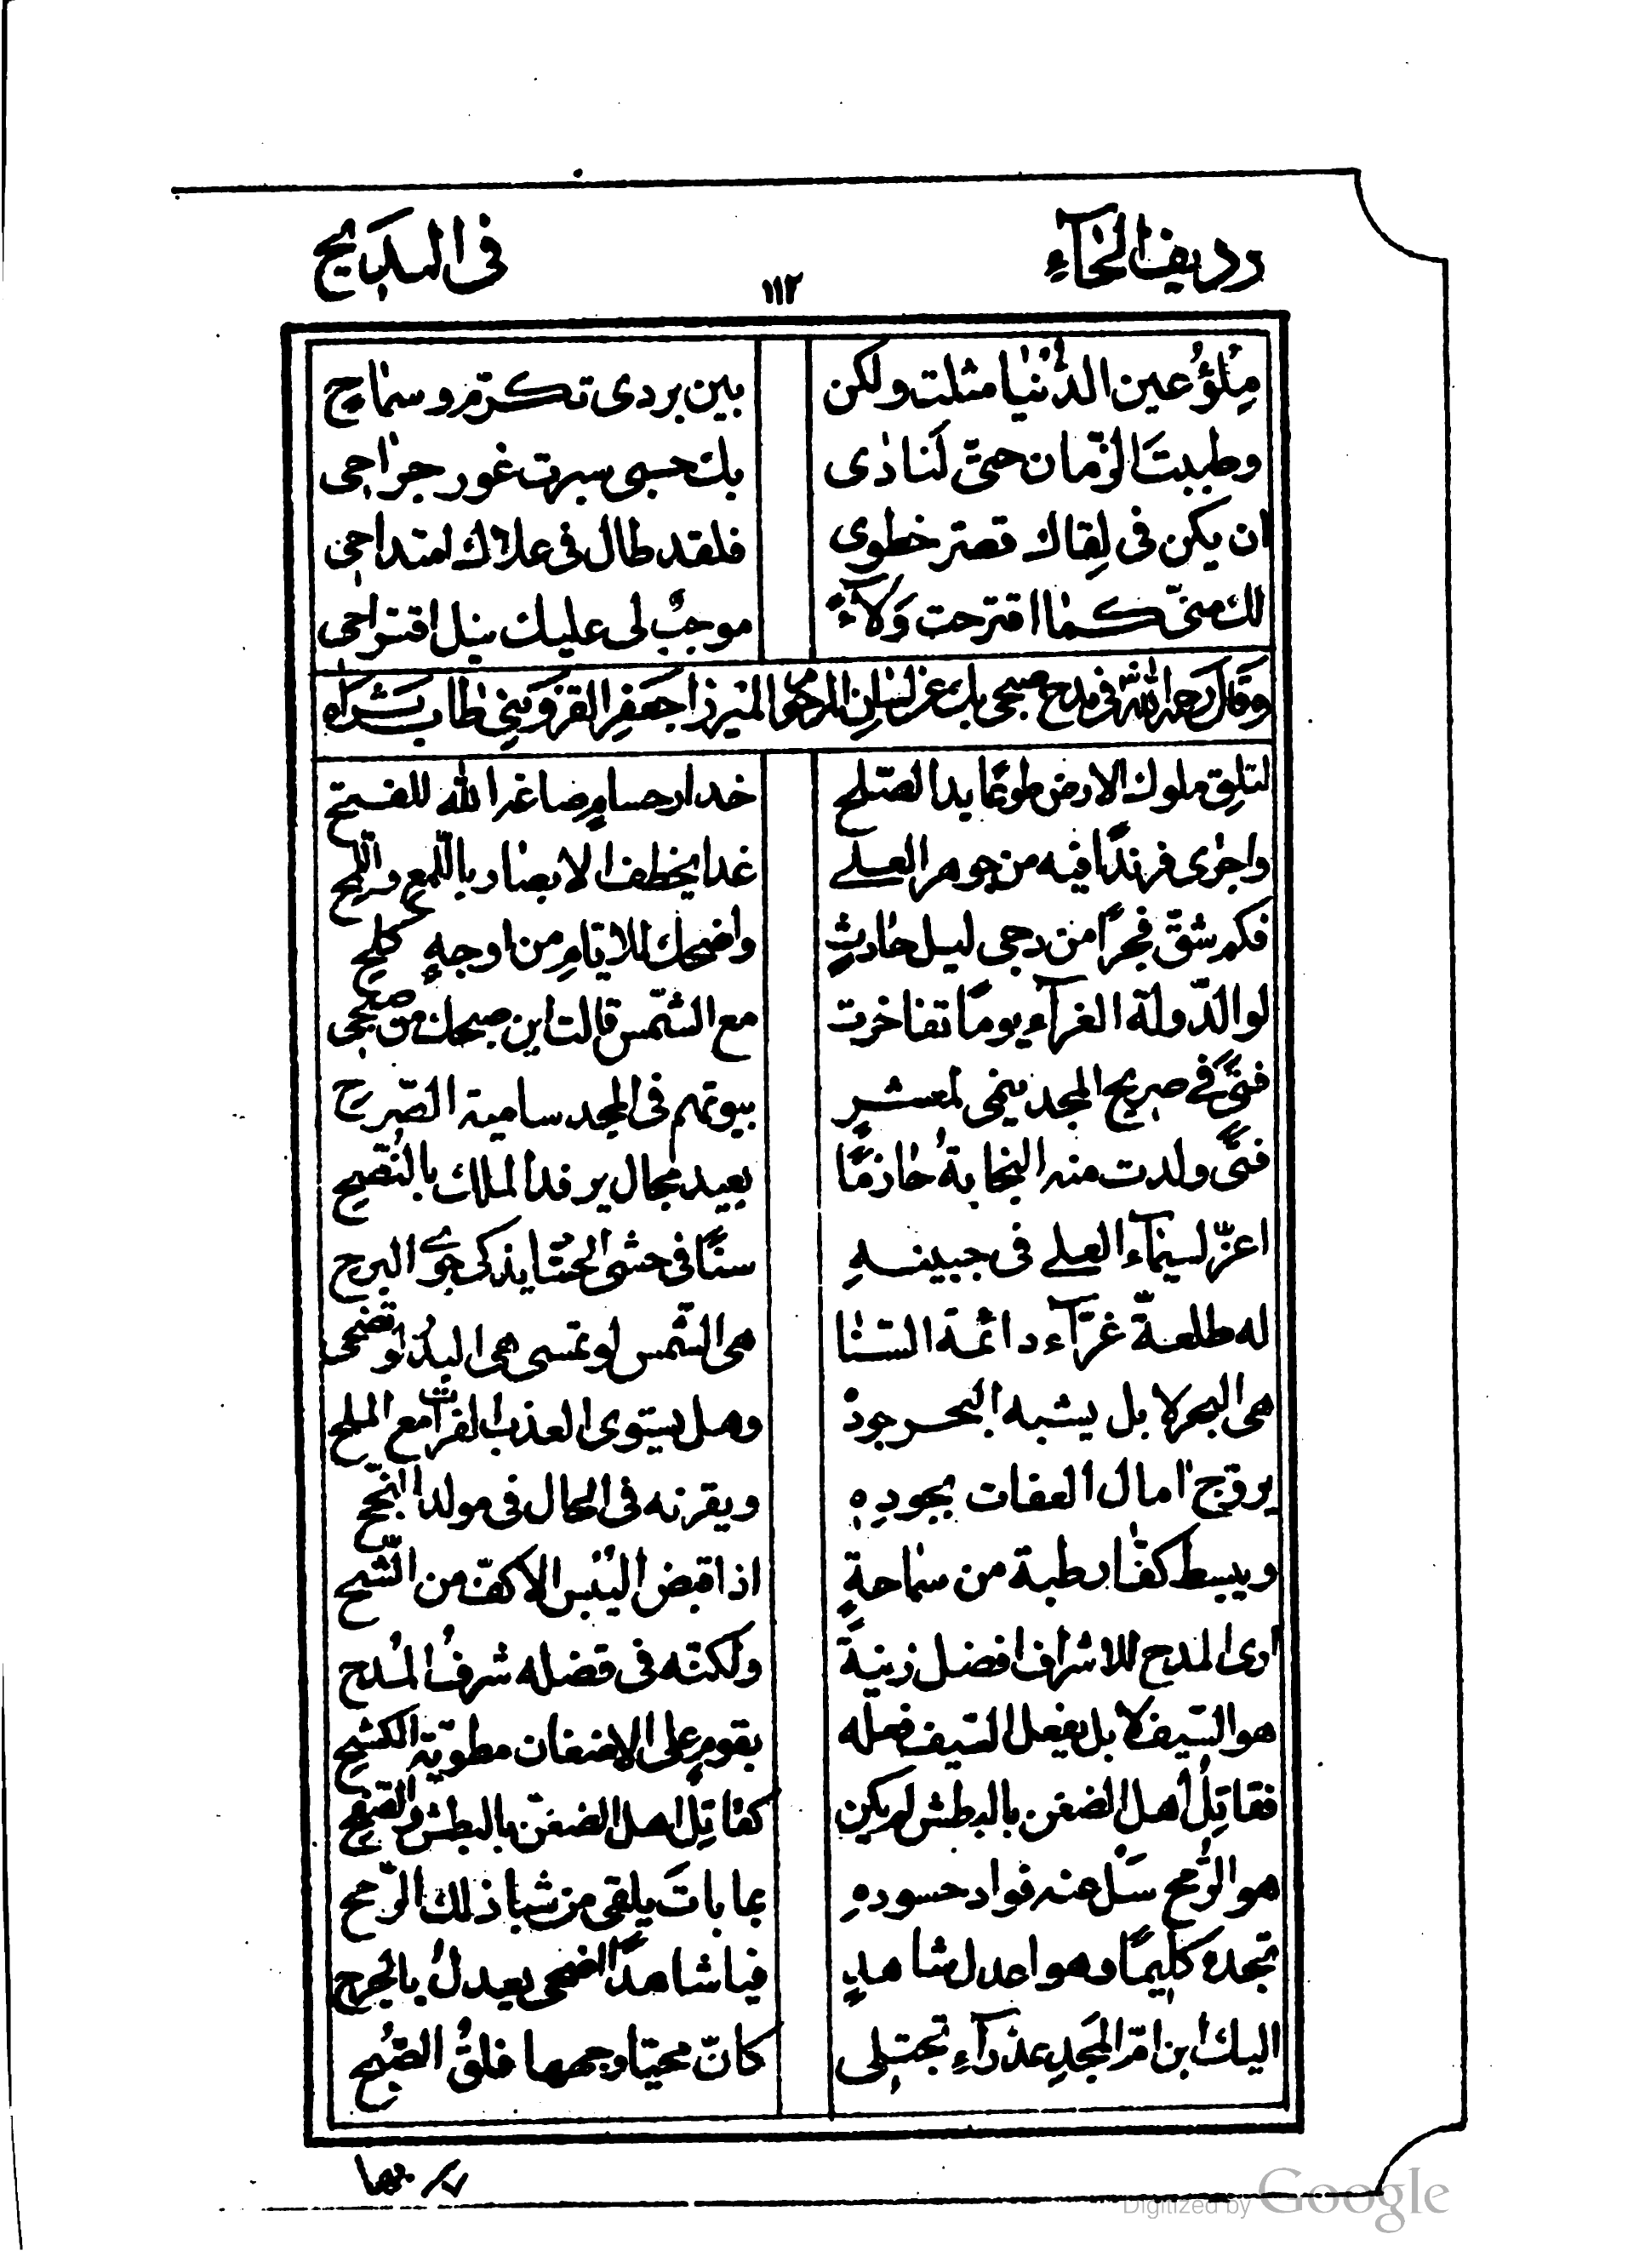 رديف الحآءِ
١١٢
في المديح
مِلْؤُ عين الدُّنْيا مثلت ولكن بين بردى تكرّم وسماح
وطبيبَ الزّمان حتىّ لَنادٰى بك حسبى سبرت غور جراحى
ان يكن فى لِقاك قصّر خطوى فلقد طال فى علاك امتداحى
لك منىّ كما اقترحت وَلآءً موجبٌ لى عليك نيل اقتراحى
وَقالَ رحمه الله فى مدح صبحى بك عن لسان المرحوم الميرزا جعفر القزوينىّ طاب ثراه
لتلق ملوك الارض طوعًا يدا لصّلح حذار حسامٍ صاغه الله للفتح
واجرٰى فرندًا فيه من جوهر العلى غدا يخطف الابصار باللّمع واللّمح
فكم شقّ فجرًا من دجى ليل حادثٍ واضحك للايّامِ من اوجهٍ كلح
لو الدّولة الغرآء يومًا تفاخرت مع الشّمس قالت اين صبحك من صبحى
فتىً فى صريح المجد ينمى لمعشرٍ بيوتهم فى المجد سامية الصّرح
فتىً ولدت منه النجابةُ حازمًا بعيد مجال يرفد الملك بالنّصح
اعزّ لسيمآء العلى فى جبينهِ سنًا فى حشى الحسّاد يذكى جوى البرح
له طلعة غرّآء دائمة السّنا هى الشّمس لو تمسى هى البدرُ لو تضحى
هى البحر لا بل يشبه البحر جودهُ وهل يستوى العذب الفرات مع الملح
يروّج اٰمال العفات بجودِهِ ويقرنه فى الحال فى مولد النّجح
ويبسط كفّا رطبة من سماحةٍ اذا قبض اليُبْس الاكفّ من الشّح
ارى المدح للاشراف افضل زينةً ولكنّه فى فضله شرفُ المُدح
هو السّيف لا بل يفعل السّيف فعله بقومٍ على الاضغان مطويّة الكشح
فقاتِلُ اهل الضغن بالبطش لم يكن كقاتِل اهل الضغن بالبطش والصّفح
هو الرّمح سَل عنه فواد حسودهِ بما باتَ يلقى من شبا ذلك الرّمح
تجده كليمًا وهو اعدل شاهدٍ فيا شاهدًا اضحى يعدلُ بالجرح
اليك ابن امّ المَجدِ عذرآءِ تجتلى كانّ محيّا وجهها فلقُ الصّبح